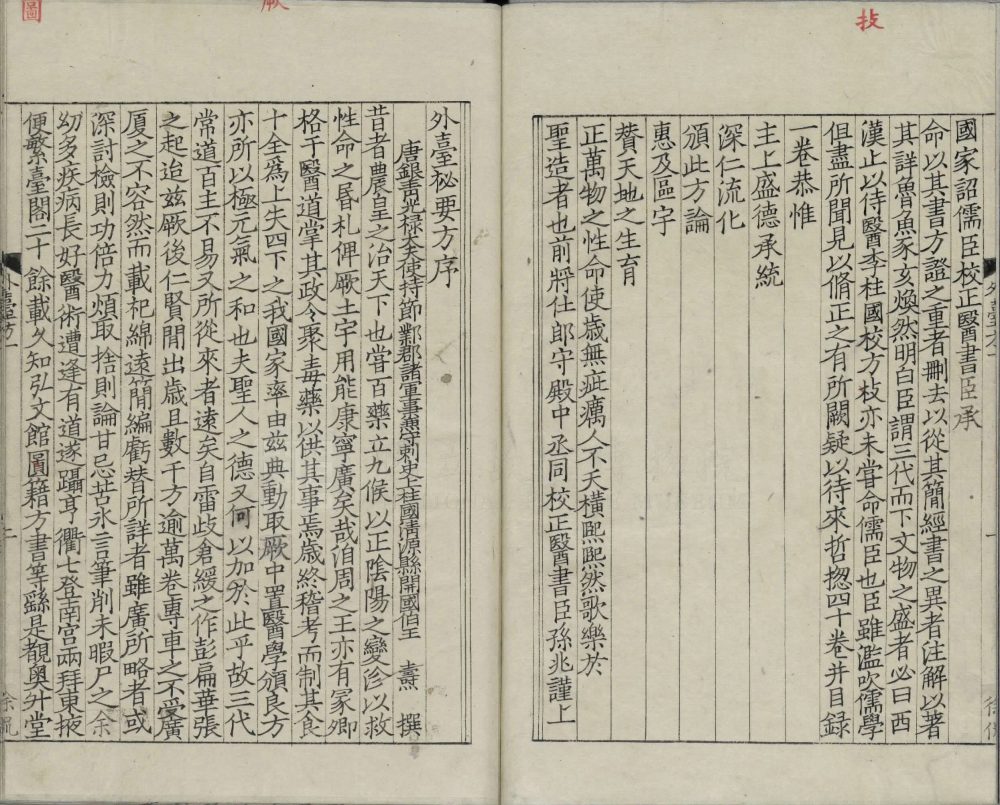 國家詔儒臣校正醫書臣承
命以其書方證之重者刪去以從其簡經書之異者注解以著
其詳魯魚豕亥煥然明白臣謂三代而下文物之盛者必曰西
漢止以侍醫李柱國校方技亦未嘗命儒臣也臣雖濫吹儒學
但盡所聞見以脩正之有所闕疑以待來哲揔四十卷并目錄
一卷恭惟
主上盛德承統
深仁流化
頒此方論
惠及區宇
贊天地之生育
正萬物之性命使歲無疵癘人不夭橫熙熙然歌樂於
聖造者也前將仕郎守殿中丞同校正醫書臣孫兆謹上
外臺秘要方序
唐銀青光祿大夫使持節鄴郡諸軍事兼守刺史上柱國清源縣開國伯王 燾 撰
昔者農皇之治天下也嘗百藥立九候以正陰陽之變沴以救
性命之昬札俾厥土宇用能康寧廣矣哉洎周之王亦有冢卿
格于醫道掌其政令聚毒藥以供其事焉歲終稽考而制其食
十全爲上失四下之我國家率由兹典動取厥中置醫學頒良方
亦所以極元氣之和也夫聖人之德又何以加於此乎故三代
常道百王不易又所從來者遠矣自雷歧倉緩之作彭扁華張
之起迨兹厥後仁賢閒出歲且數千方逾萬卷專車之不受廣
厦之不容然而載祀綿遠簡編虧替所詳者雖廣所略者或
深討檢則功倍力煩取捨則論甘忌苦永言筆削未暇尸之余
幼多疾病長好醫術遭逢有道遂躡亨衢七登南宫兩拜東掖
便繁臺閣二十餘載久知弘文館圖籍方書等繇是覩奥升堂
技
厥
圖